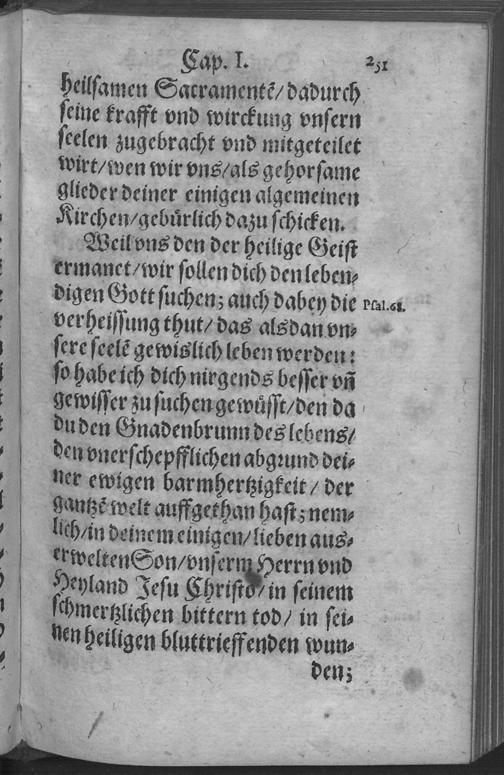 Cap. I. 251
heilsamen Sacramentē/ dadurch
seine krafft vnd wirckung vnsern
seelen zugebracht vnd mitgeteilet
wirt/ wen wir vns/ als gehorsame
glieder deiner einigen algemeinen
Kirchen/ gebürlich dazu schicken.
Weil vns den der heilige Geist
ermanet/ wir sollen dich den leben⸗
digen Gott suchen; auch dabey die Psal.68.
verheissung thut/ das alsdan vn⸗
sere seelē gewislich leben werden:
so habe ich dich nirgends besser vn̄
gewisser zu suchen gewüsst/ den da
du den Gnadenbrunn des lebens/
den vnerschepfflichen abgrund dei⸗
ner ewigen barmhertzigkeit/ der
gantzē welt auffgethan hast; nem⸗
lich/ in deinem einigen/ lieben aus⸗
erwelten Son/ vnserm Herrn vnd
Heyland Jesu Christo/ in seinem
schmertzlichen bittern tod/ in sei⸗
nen heiligen bluttrieffenden wun⸗
den;